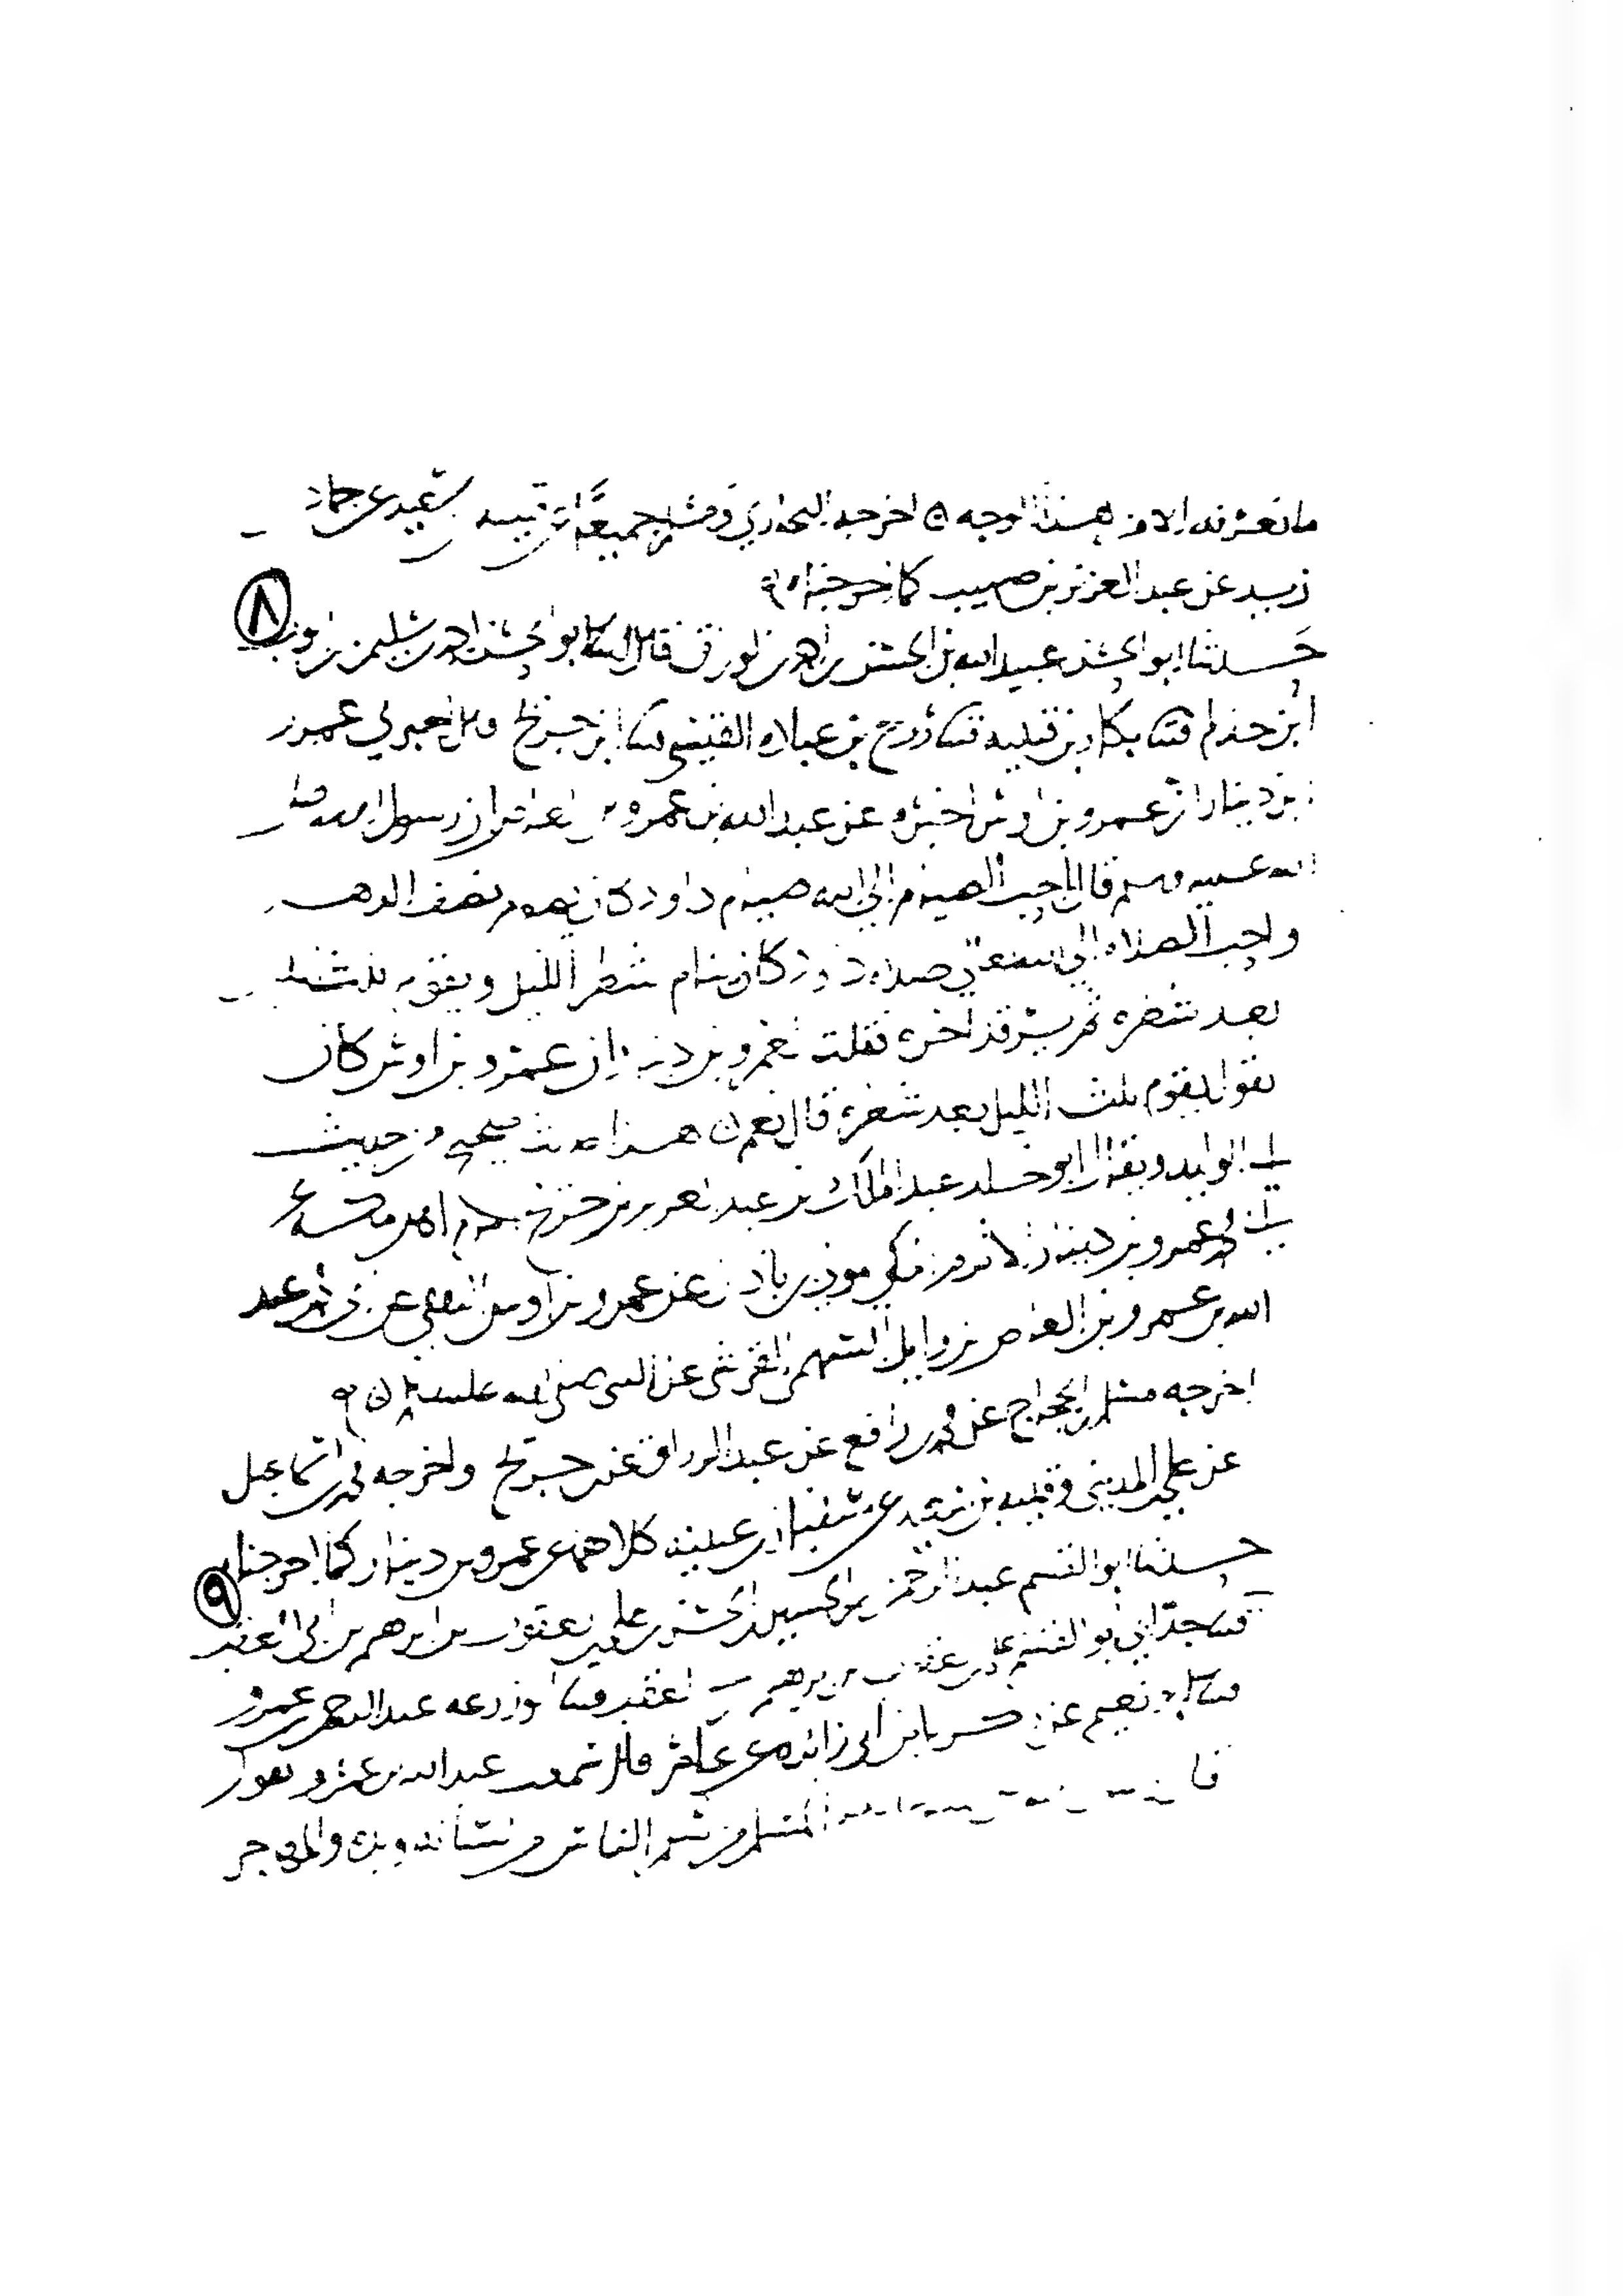 ما نعرفه الا من هذا الوجه ه اخرجه البخاري ومسلم جميعا عن قتيبه بن سعيد عن حماد بن
زيد عن عبد العزيز بن صهيب كما اخرجناه
٨
حدثنا ابو الحسن عبيد الله بن الحسن بن احمد الوراق قال ثنا ابو الحسن احمد بن سليمن بن ايوب
ابن حذلم ثنا بكار بن قتيبه ثنا روح بن عباده القيسي ثنا ابن جريج قال اخبرني عمرو
بن دينار ان عمرو بن اوس اخبره عن عبد الله بن عمرو بن العاص ان رسول الله صلى
الله عليه وسلم قال احب الصيام الى الله صيام داود كان يصوم نصف الدهر
واحب الصلاه الى الله تعالى صلاه داود كان ينام شطر الليل ويقوم ثلث الليل
بعد شطره ثم يرقد اخره فقلت لعمرو بن دينار ان عمرو بن اوس كان
يقول يقوم ثلث الليل بعد شطره قال نعم ه هذا حديث صحيح من حديث
ابي الوليد ويقال ابو خالد عبد الملك بن عبد العزيز بن جريج
ابي محمد عمرو بن دينار الاثرم مكي مولى بن باذان عن عمرو بن اوس الثقفي عن ابي محمد عبد
الله بن عمرو بن العاص بن وايل السهمي القرشي عن النبي صلى الله عليه وسلم ه
اخرجه مسلم بن الحجاج عن محمد بن رافع عن عبد الرزاق عن بن جريج واخرجه محمد بن اسماعيل
عن علي بن المديني وقتيبه بن سعيد عن سفيان بن عيينه كلاهما عن عمرو بن دينار كما اخرجناه
٩
حدثنا ابو القسم عبد الرحمن بن الحسين بن الحسن بن علي بن يعقوب بن ابرهيم بن ابي العقب
ثنا جد ابي ابو القسم علي بن يعقوب بن ابرهيم بن ابي العقب ثنا ابو زرعه عبد الرحمن بن عمرو
ثنا ابو نعيم عن زكريا بن ابي زائده عن عامر قال سمعت عبد الله بن عمرو يقول
قال المسلم من سلم الناس من لسانه ويده والمهاجر